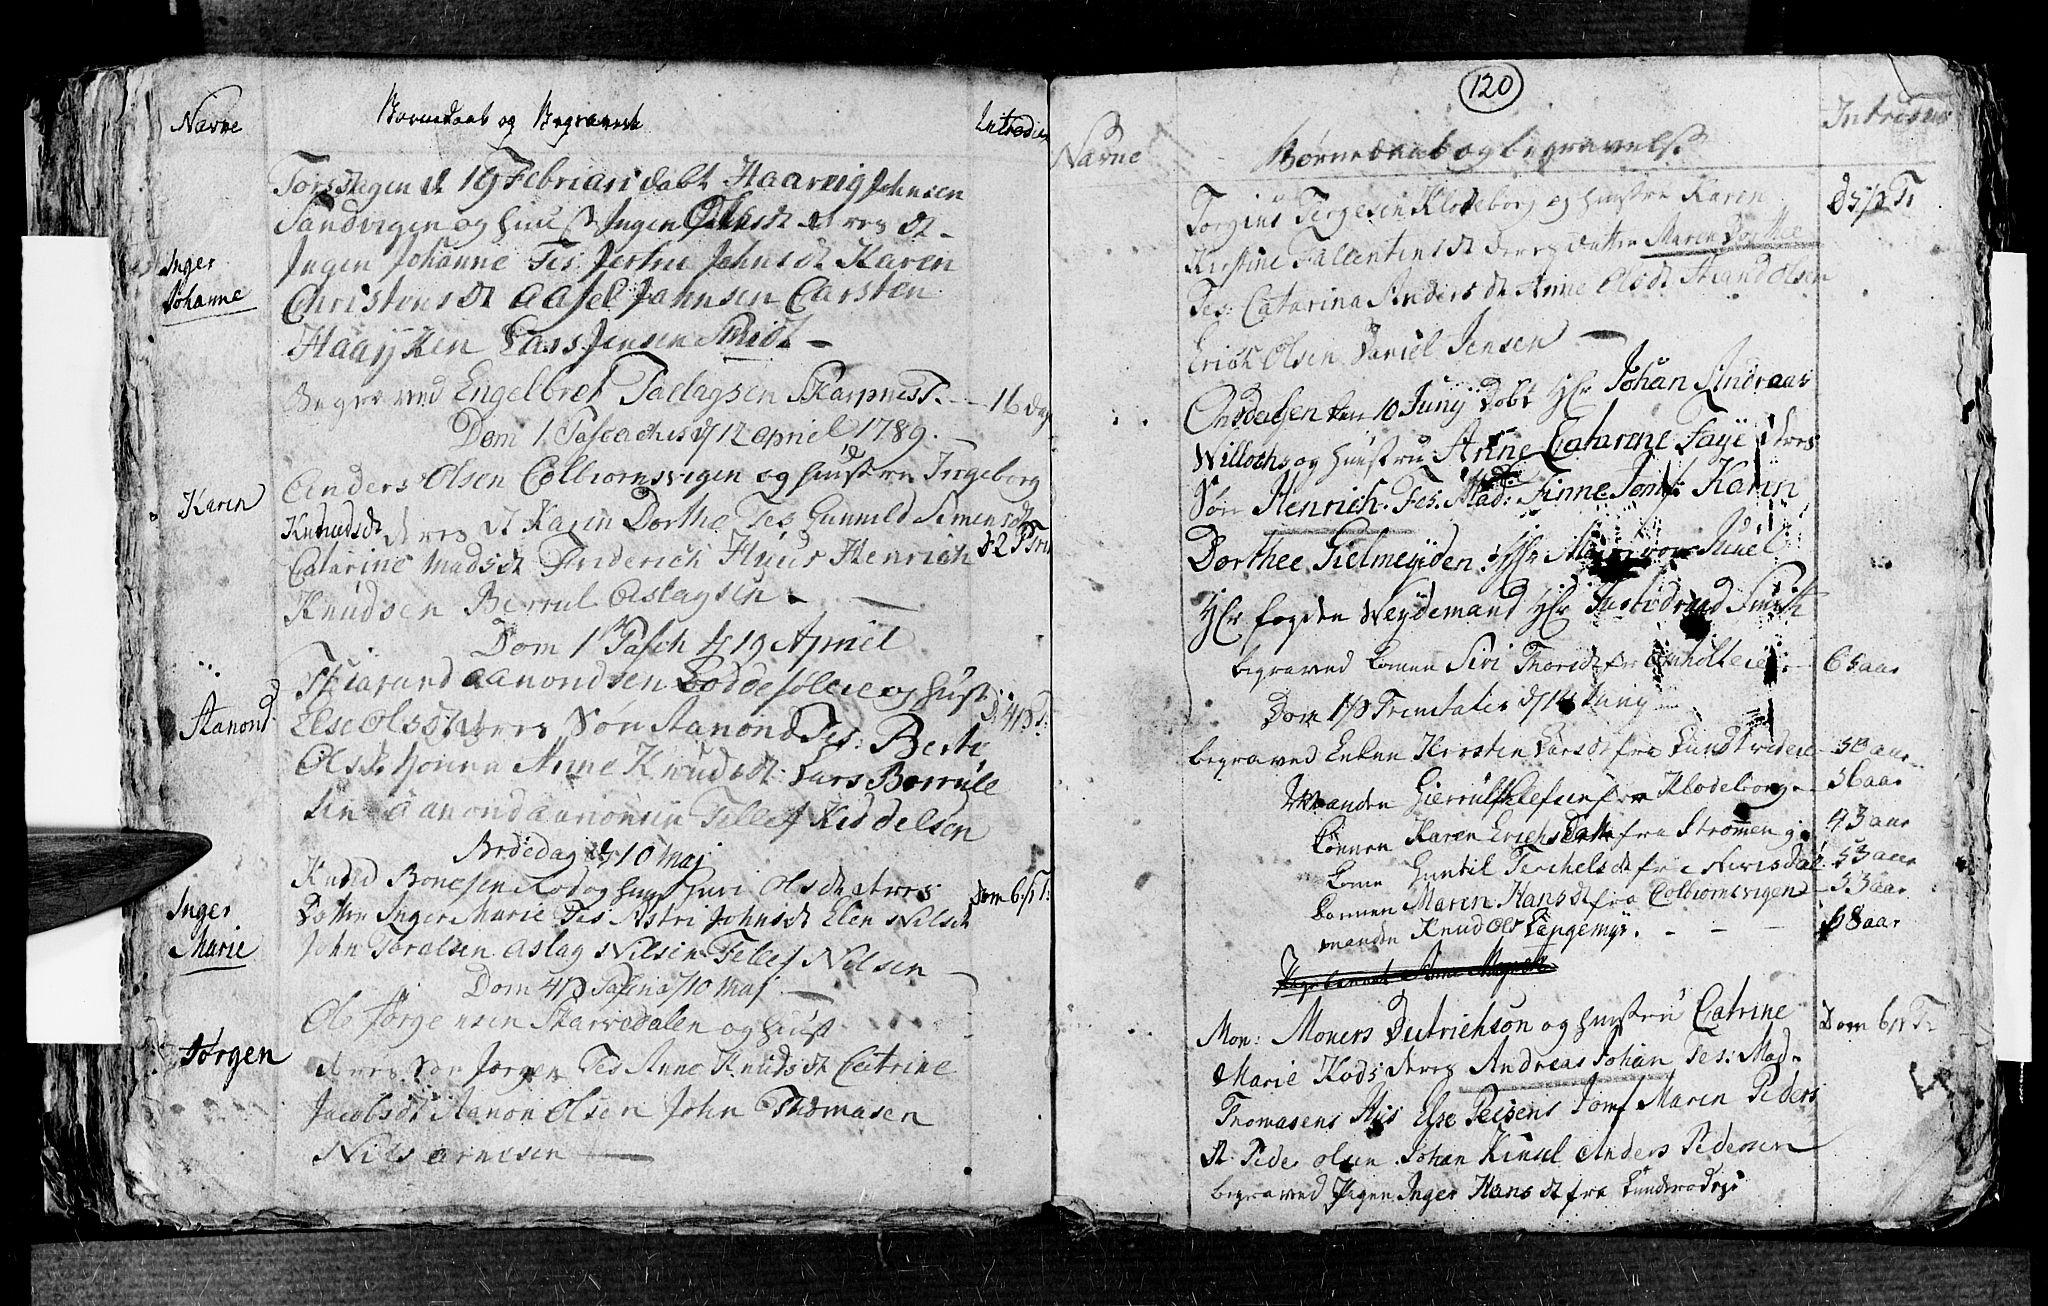 Navne
Børnedaab og Begravelse
Introduc
Torsdagen d 19 Februari døbt Haavig Johnsen
Sandvigen og Hust Ingen Olsdt deres dt
Inger
Johanne
Ingen Johanne Tes Jertru Johnsdt Karen
Christensdt Aasel Jahnsen Carsten
Haaÿken Lars Jensen Smidt
Begraved Engelbret Tallagsen Skarpnest. - 16 dag
Dom 1 Paschatis d 12 Apriel 1789.
Karen
Anders Olsen Colbiornsvigen og Hustru Ingeborg
Knudsdt deres dt Karen Dorthe Tes Gunnild Simensdt
d 2 P Tri
Catarine Madsdt Friderich Huus Henrich
Knudsen Berrul Aslagsen
Dom 1 Pasch d 19 April
Aanond
Aanondsen og Hust
Else Olsdt deres Søn Aanond Tes: Berte
D: 4 p T:
Olsdt Anne Knudsdt Lars Børrule
sen Aanond Aanonsen Tellef Kiddelsen
Bededag d 10 Maj
Inger
Marie
Knud Bonesen og Hust Guri Olsdt deres
Dom 6 p T:
Datter Inger Marie Tes Astri Johnsdt Elen Nilsdt
John Toralsen Aslag Nilsen Tellef Nilsen
Dom 4 p Pasch d 10 Maj
Jørgen
Ole Jørgensen Skarvedalen og Hust
deres Søn Jørgen Tes Anne Knudsdt Catrine
Jacobsdt Aanon Olsen John Thomasen
Nils Arnesen
120
Navne
Børnedaab og Begravelse
Introduc
Torgius Tergesen Klodeborg og Hustru Karen
D 5 p Tr
Kirstine Fallentinsdt deres datter Maren Dorthe
Tes: Catarina Andersdt Anne Olsdt Strand Olsen
Erich Olsen Daniel Jensen
Onsdagen den 10 Junÿ døbt Hr Johan Andreas
Willochs og Hustru Anne Catarine Faÿe deres
Søn Henrich. Tes. Mad: Finne Jomf: Karen
Dorthee Gielmeÿden. Hr von Juuel
Hr fogden Weÿdemand Hr Smith
begraved Konen Siri Thorsdt fra - 65 aar
Dom 1 p Trinitatis d 14 Junÿ
begraved Enken Kirsten Larsdt fra - 50 aar
Manden fra Klodeborg - 56 aar
Konnen Karen Erichsdatt fra Strømmen - 43 aar
Kone Guntil Terchelsdt fra Nerisdal - 53 aar
Konnen Maren Hansdt fra Colbiornsvigen - 33 aar
manden Knud Ols Langemÿr. - - - 68 aar
Mon: Moners Diderichson og Hustru Catrine
Dom 6 p Tr
Marie Kods deres Andreas Johan Tes: Mad.
Thomasens His Else Peisens Jomf Maren Peders
dt Peder Olsen Johan Kinsel Anders Pedersen
begraved Pigen Inger Hansdt fra